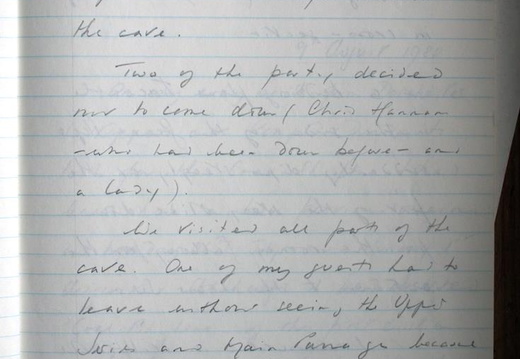 the cave.
Two of the party decided
not to come down (Chris Hannan
- who had been down before - and
a lady).
We visited all parts of the
cave. One of my guests had to
leave without seeing the Upper
Series and Main Passage because